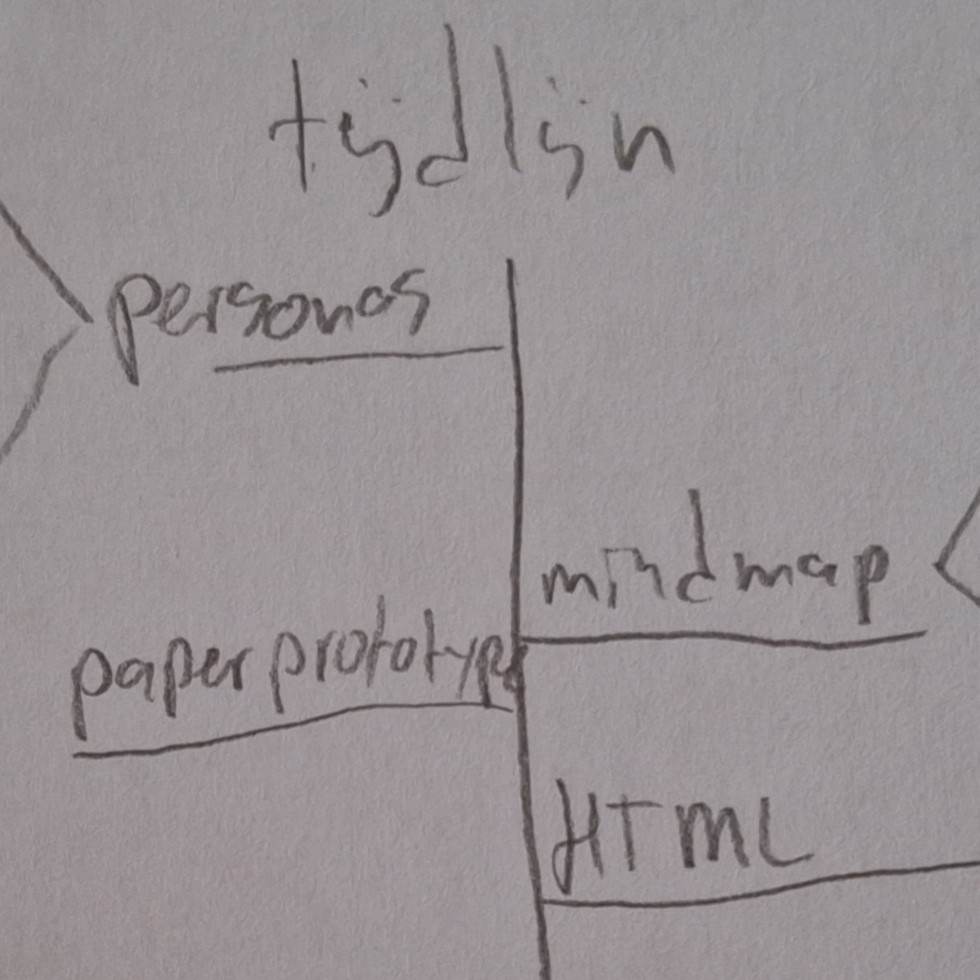 tijdlijn
personas
mindmap
paper prototype
HTML